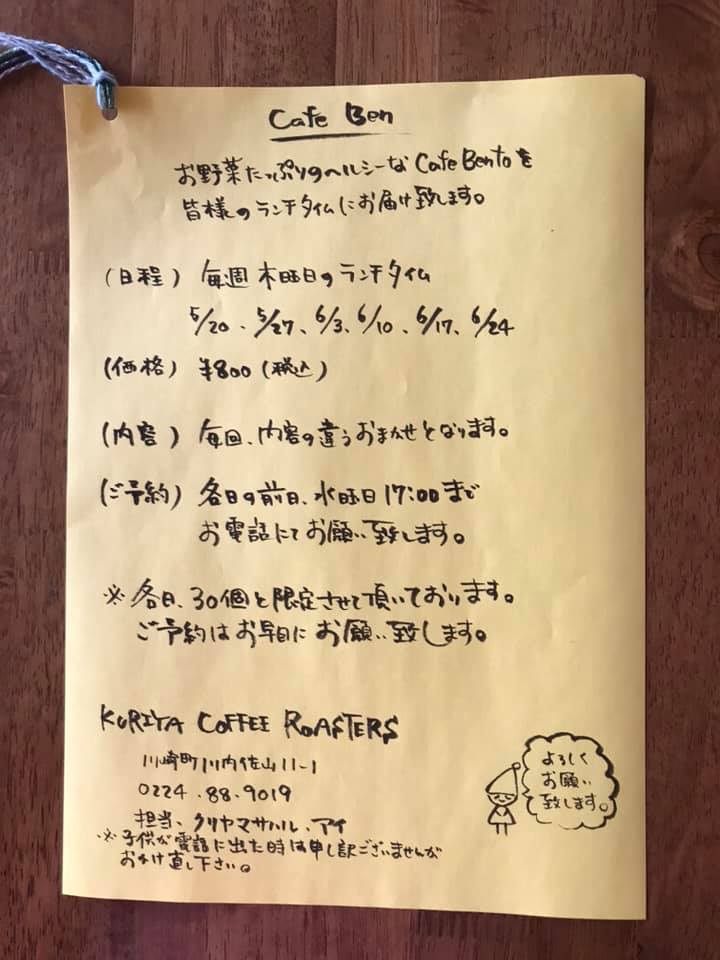 Cafe Ben
お野菜たっぷりのヘルシーな Cafe Bentoを
皆様のランチタイムにお届け致します。
(日程) 毎週 木曜日のランチタイム
5/20、5/27、6/3、6/10、6/17、6/24
(価格) ¥800 (税込)
(内容) 毎回、内容の違うおまかせとなります。
(ご予約) 各日の前日、水曜日 17:00まで
お電話にてお願い致します。
※ 各日、30個と限定させて頂いております。
ご予約はお早目にお願い致します。
KURIYA COFFEE ROASTERS
川崎町川内佐山11-1
0224.88.9019
担当、クリヤマサハル、アイ
※子供が電話に出た時は申し訳ございませんが
おかけ直し下さい。
よろしく
お願い
致します。